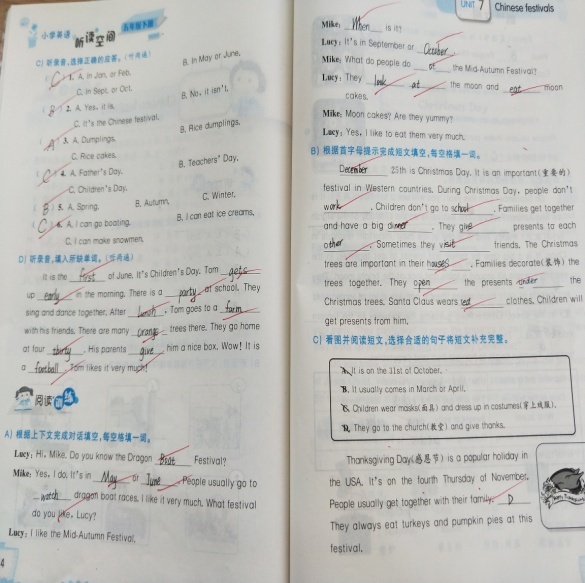 小学英语 听读空间 五年级下册
C) 听录音,选择正确的应答。(听两遍)
C 1. A. In Jan. or Feb. B. In May or June.
C. In Sept. or Oct.
B 2. A. Yes, it is. B. No, it isn't.
C. It's the Chinese festival.
A 3. A. Dumplings. B. Rice dumplings.
C. Rice cakes.
C 4. A. Father's Day. B. Teachers' Day.
C. Children's Day.
B 5. A. Spring. B. Autumn. C. Winter.
C 6. A. I can go boating. B. I can eat ice creams.
C. I can make snowmen.
D) 听录音,填入所缺单词。(听两遍)
It is the first of June. It's Children's Day. Tom gets
up early in the morning. There is a party at school. They
sing and dance together. After lunch, Tom goes to a farm
with his friends. There are many orange trees there. They go home
at four thirty. His parents give him a nice box. Wow! It is
a football. Tom likes it very much!
阅读训练
A) 根据上下文完成对话填空,每空格填一词。
Lucy: Hi, Mike. Do you know the Dragon Boat Festival?
Mike: Yes, I do. It's in May or June. People usually go to
watch dragon boat races. I like it very much. What festival
do you like, Lucy?
Lucy: I like the Mid-Autumn Festival.
4
UNIT 7 Chinese festivals
Mike: When is it?
Lucy: It's in September or October.
Mike: What do people do at the Mid-Autumn Festival?
Lucy: They look at the moon and eat moon
cakes.
Mike: Moon cakes? Are they yummy?
Lucy: Yes, I like to eat them very much.
B) 根据首字母提示完成短文填空,每空格填一词。
December 25th is Christmas Day. It is an important(重要的)
festival in Western countries. During Christmas Day, people don't
work. Children don't go to school. Families get together
and have a big dinner. They give presents to each
other. Sometimes they visit friends. The Christmas
trees are important in their houses. Families decorate(装饰) the
trees together. They open the presents under the
Christmas trees. Santa Claus wears red clothes. Children will
get presents from him.
C) 看图并阅读短文,选择合适的句子将短文补充完整。
A. It is on the 31st of October.
B. It usually comes in March or April.
C. Children wear masks(面具) and dress up in costumes(穿上戏服).
D. They go to the church(教堂) and give thanks.
Thanksgiving Day(感恩节) is a popular holiday in
the USA. It's on the fourth Thursday of November.
People usually get together with their family. D
They always eat turkeys and pumpkin pies at this
festival.